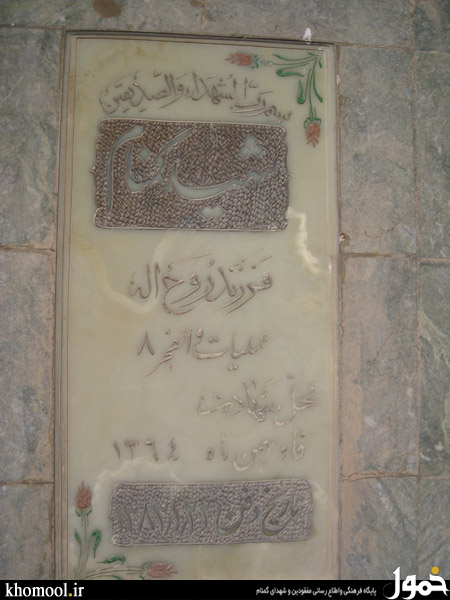 بسم رب الشهداء والصدیقین
شهید گمنام
فرزند روح اله
عملیات والفجر ۸
محل شهادت
فاو بهمن ماه ۱۳۶۴
تاریخ دفن
khomool.ir
پایگاه فرهنگی واطلاع رسانی مفقودین و شهدای گمنام
خمول